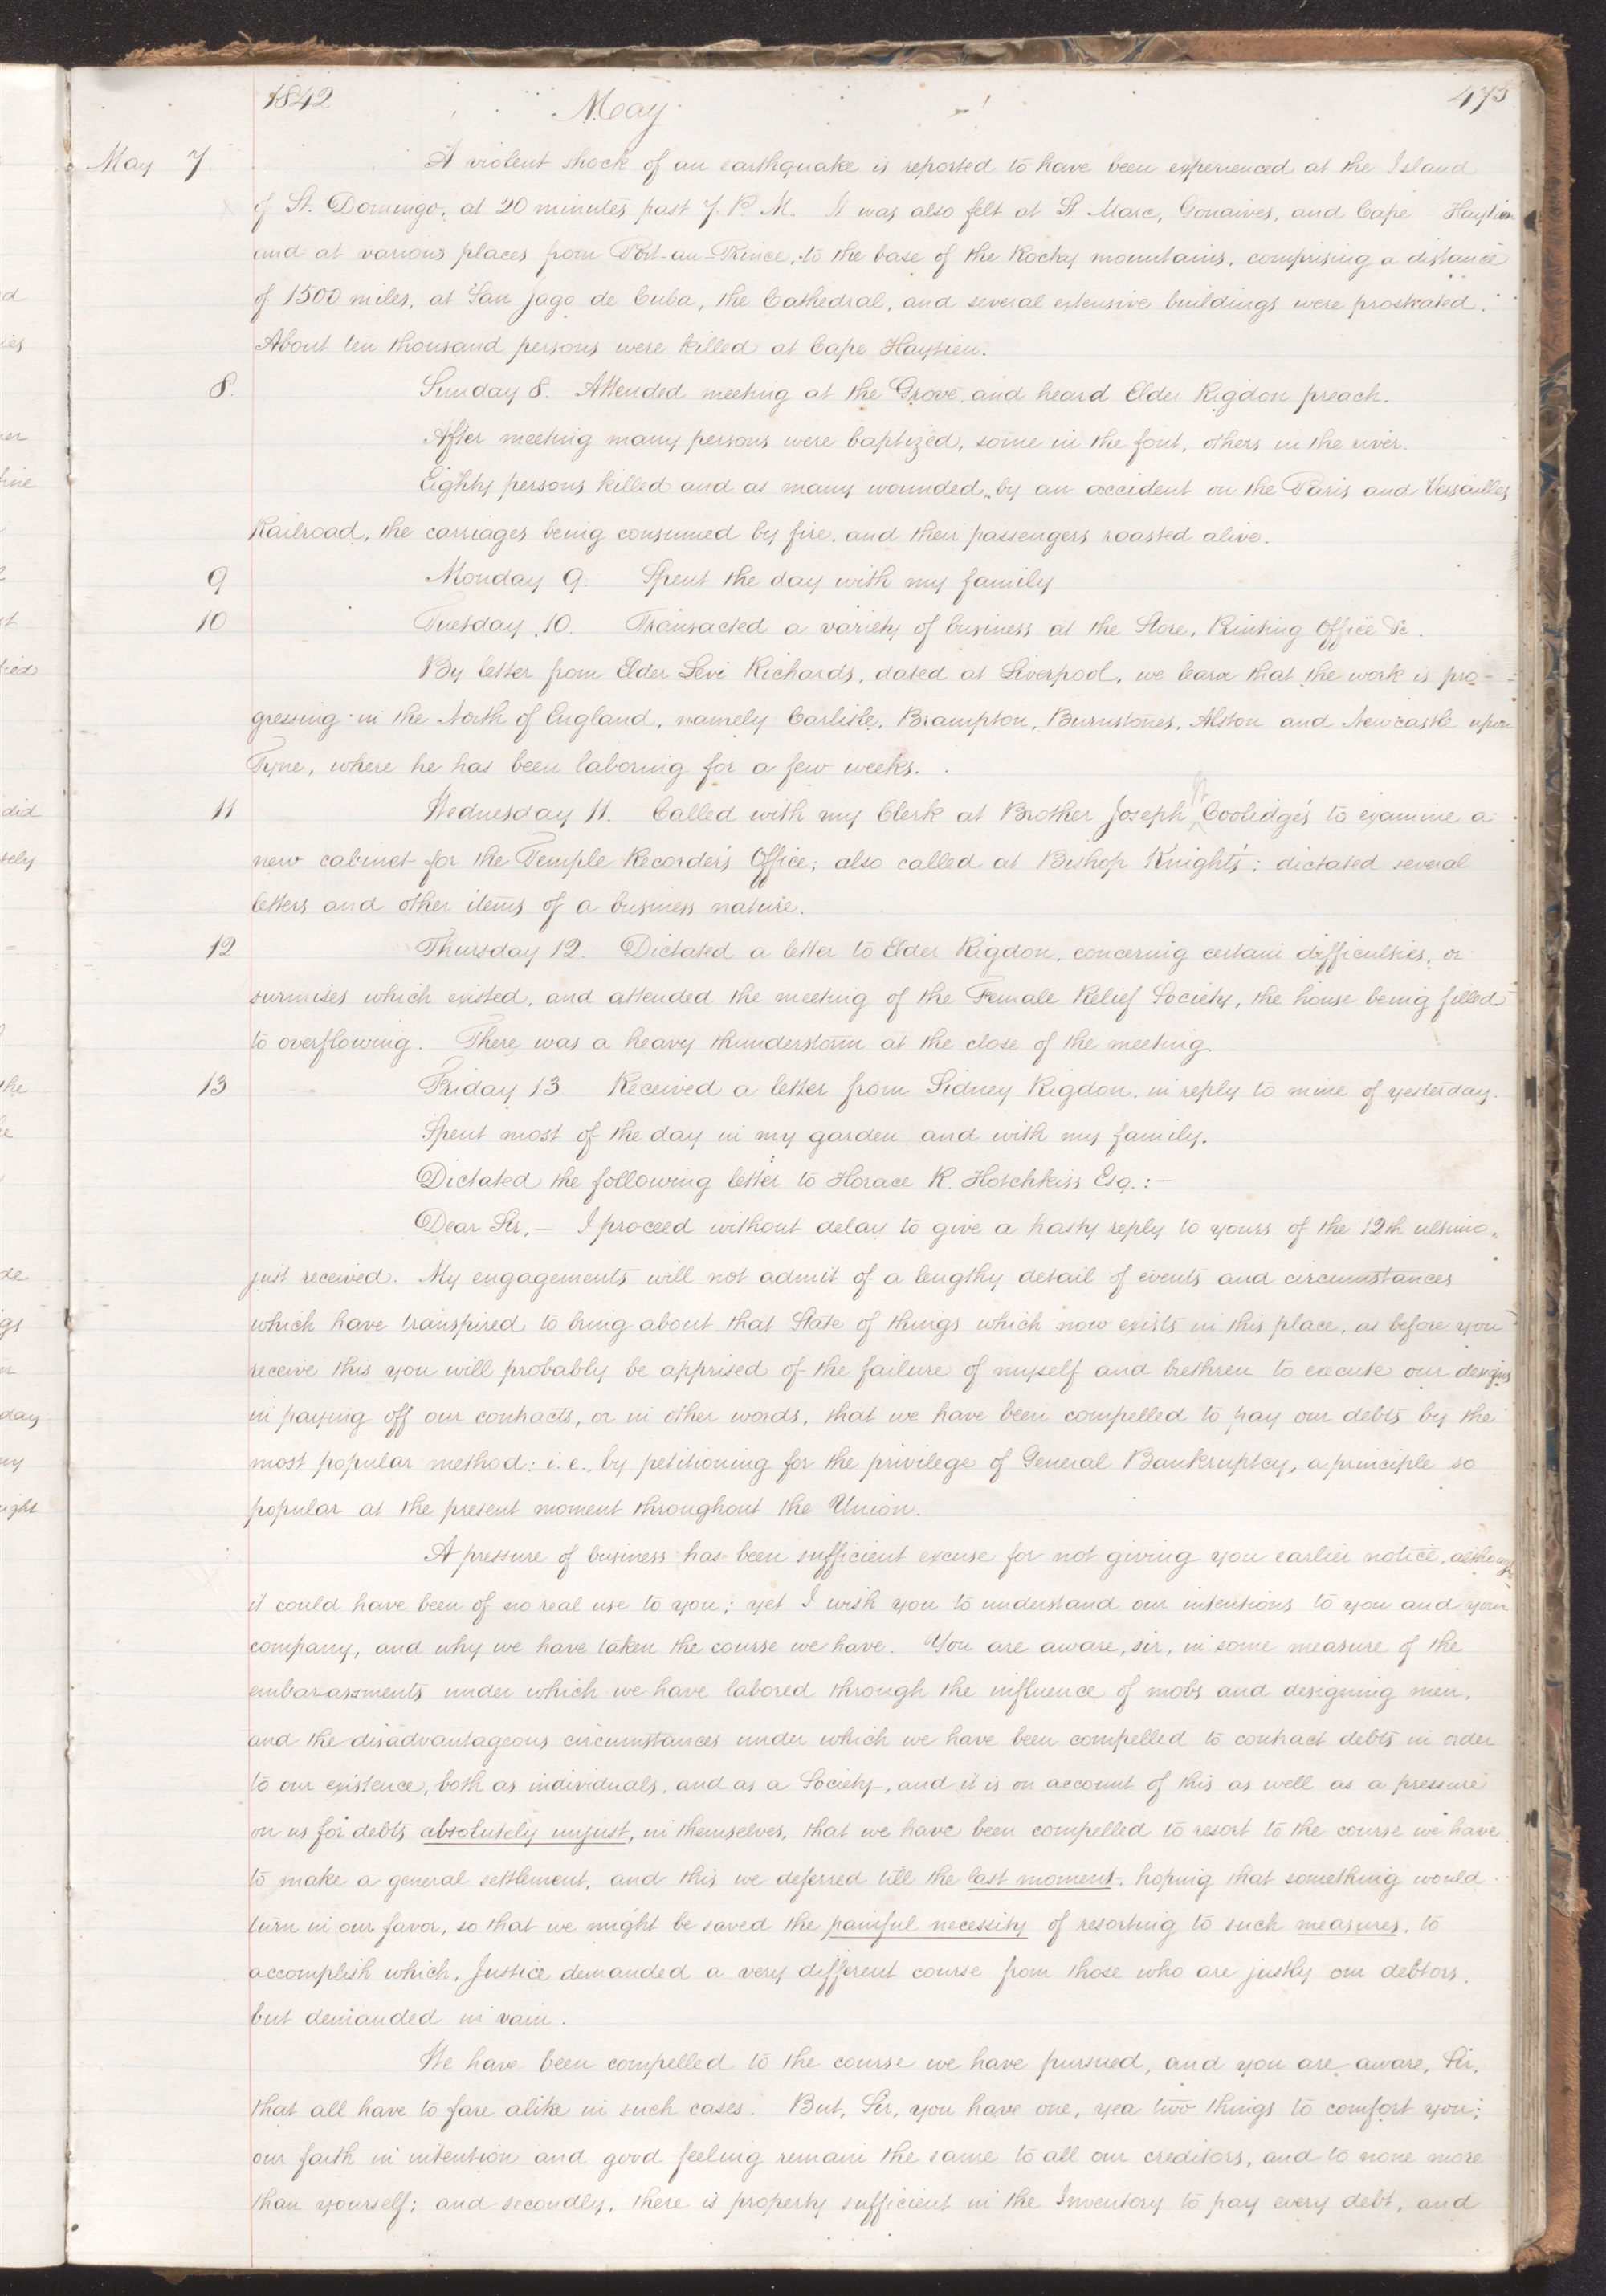 1842 May 475
May 7 A violent shock of an earthquake is reported to have been experienced at the Island
of St. Domingo, at 20 minutes past 7. P. M. It was also felt at St Marc, Gonaives, and Cape Haytien
and at various places from Port-au-Prince, to the base of the Rocky mountains, comprising a distance
of 1500 miles, at San Jago de Cuba, the Cathedral, and several extensive buildings were prostrated.
About ten thousand persons were killed at Cape Haytien.
8. Sunday 8. Attended meeting at the Grove, and heard Elder Rigdon preach.
After meeting many persons were baptized, some in the font, others in the river.
Eighty persons killed and as many wounded, by an accident on the Paris and Versailles
Railroad, the carriages being consumed by fire, and their passengers roasted alive.
9 Monday 9. Spent the day with my family
10 Tuesday 10. Transacted a variety of business at the Store, Printing Office &c.
By letter from Elder Levi Richards, dated at Liverpool, we learn that the work is pro-
gressing in the North of England, namely Carlisle, Brampton, Burnstones, Alston and Newcastle upon
Tyne, where he has been laboring for a few weeks.
11 Wednesday 11. Called with my Clerk at Brother Joseph W. Coolidge's to examine a
new cabinet for the Temple Recorder's Office; also called at Bishop Knight's; dictated several
letters and other items of a business nature.
12 Thursday 12. Dictated a letter to Elder Rigdon, concerning certain difficulties, or
surmises which existed, and attended the meeting of the Female Relief Society, the house being filled
to overflowing. There was a heavy thunderstorm at the close of the meeting.
13 Friday 13. Received a letter from Sidney Rigdon, in reply to mine of yesterday.
Spent most of the day in my garden and with my family.
Dictated the following letter to Horace R. Hotchkiss Esq.:—
Dear Sir,— I proceed without delay to give a hasty reply to yours of the 12th ultimo,
just received. My engagements will not admit of a lengthy detail of events and circumstances
which have transpired to bring about that State of things which now exists in this place, as before you
receive this you will probably be apprised of the failure of myself and brethren to execute our designs
in paying off our contracts, or in other words, that we have been compelled to pay our debts by the
most popular method; i.e., by petitioning for the privilege of General Bankruptcy, a principle so
popular at the present moment throughout the Union.
A pressure of business has been sufficient excuse for not giving you earlier notice, although
it could have been of no real use to you; yet I wish you to understand our intentions to you and your
company, and why we have taken the course we have. You are aware, sir, in some measure of the
embarassments under which we have labored through the influence of mobs and designing men,
and the disadvantageous circumstances under which we have been compelled to contract debts in order
to our existence, both as individuals, and as a Society, and it is on account of this as well as a pressure
on us for debts absolutely unjust, in themselves, that we have been compelled to resort to the course we have
to make a general settlement, and this we deferred till the last moment, hoping that something would
turn in our favor, so that we might be saved the painful necessity of resorting to such measures, to
accomplish which, Justice demanded a very different course from those who are justly our debtors,
but demanded in vain.
We have been compelled to the course we have pursued, and you are aware, Sir,
that all have to fare alike in such cases. But, Sir, you have one, yea two things to comfort you;
our faith in intention and good feeling remain the same to all our creditors, and to none more
than yourself; and secondly, there is property sufficient in the Inventory to pay every debt, and